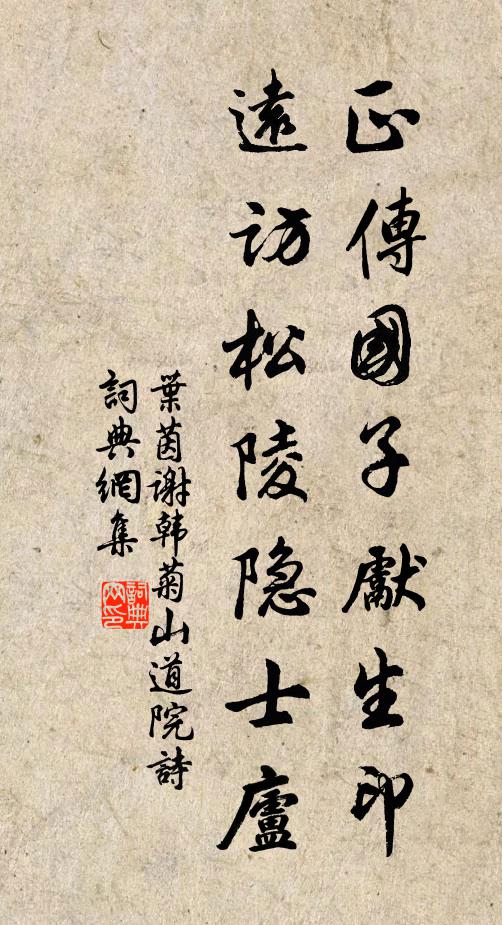 正傳國子獻生印
遠访松陵隐士廬
葉茵谢韩菊山道院詩
詞典網集
詞典网印